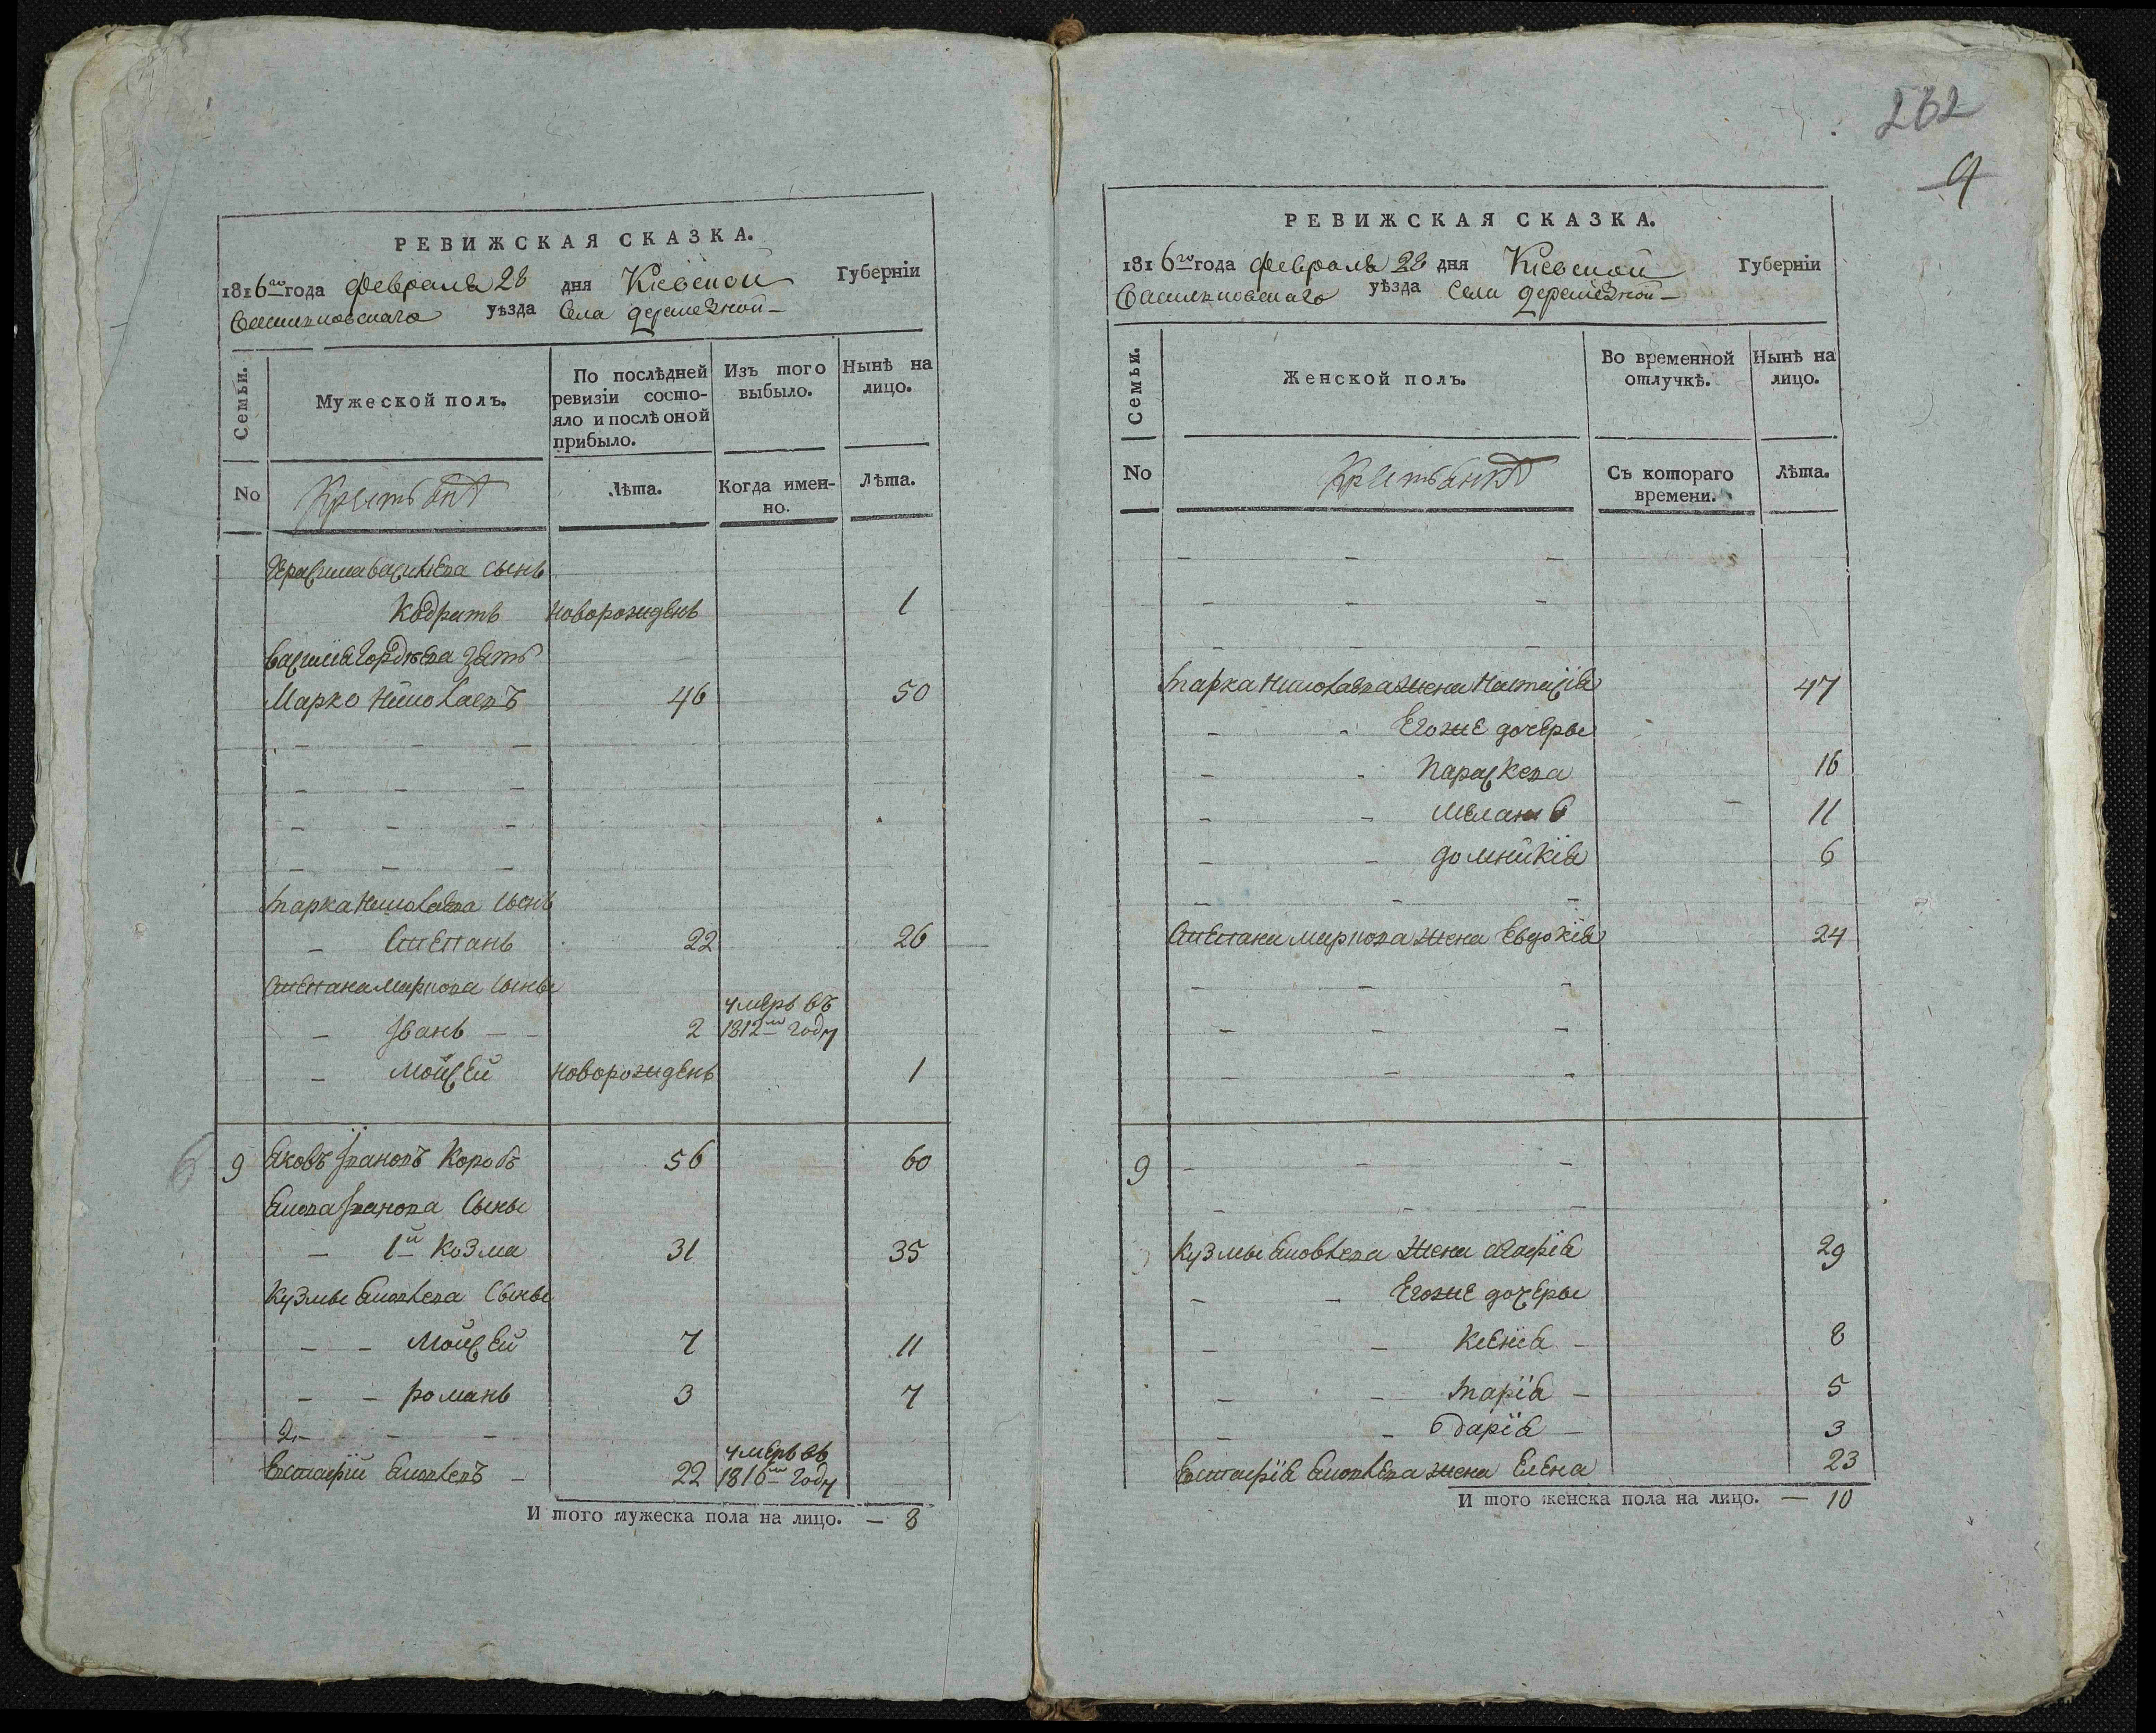 РЕВИЖСКАЯ СКАЗКА.
1816го года февраля 28 дня Кіевской Губерніи
Васильковскаго уѣзда Села деремезной
Семьи.
Мужеской полъ.
По послѣдней ревизіи состо-
яло и послѣ оной
прибыло.
Изъ того
выбыло.
Нынѣ на
лицо.
No
Лѣта.
Когда имен-
но.
Лѣта.
Герасима васильева сынъ
Кодратъ новорожденъ 1
василія гордѣева зять
Марко николаевъ 46 50
марка николаева сынъ
Степанъ 22 26
Степана маркова сыны
умеръ въ
Иванъ 2 1812м году
Мойсей новорожденъ 1
9 Яковъ Івановъ Коробъ 56 60
Якова Іванова Сыны
1й Козма 31 35
Кузмы Яковлева Сыны
Мойсей 7 11
романъ 3 7
2.
умеръ въ
Евстафій Яковлевъ 22 1816м году
И того мужеска пола на лицо. — 8
262
9
РЕВИЖСКАЯ СКАЗКА.
1816го года февраля 28 дня Кіевской Губерніи
Васильковскаго уѣзда Села деремезной
Семьи.
Женской полъ.
Во временной
отлучкѣ.
Нынѣ на
лицо.
No
Съ котораго
времени.
Лѣта.
марка николаева жена Настасія 47
Егоже дочеры
Параскева 16
Меланя 11
домникія 6
Степана маркова жена Евдокія 24
9
Кузмы Яковлева жена Агафія 29
Егоже дочеры
Ксенія 8
марія 5
дарія 3
Евстафія Яковлева жена Елена 23
И того женска пола на лицо. — 10